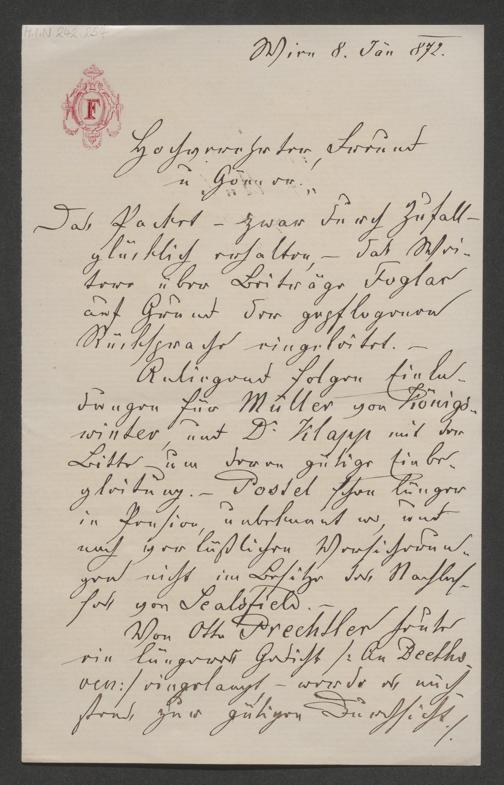 H.I.N. 242.257
Wien 8. Jän 872.
F
Hochverehrter, Freund
u. Gönner.
Das Packet – zwar durch Zufall –
glücklich erhalten, – das Wei-
tere über Beiträge Foglar
auf Grund der gepflogenen
Rücksprache eingeleitet. –
Anliegend folgen Einla-
dungen für Müller von Königs-
winter, und Dr. Klapp mit der
Bitte um deren gütige Einbe-
gleitung. – Postel schon länger
in Pension, unbekannt wo, und
nach verläßlichen Versicherun-
gen nicht im Besitze des Nachlas-
ses von Sealsfield. –
Von Otto Prechtler heute
ein längeres Gedicht /: An Beetho-
ven :/ eingelangt – werde es näch-
stens zur gütigen Durchsicht